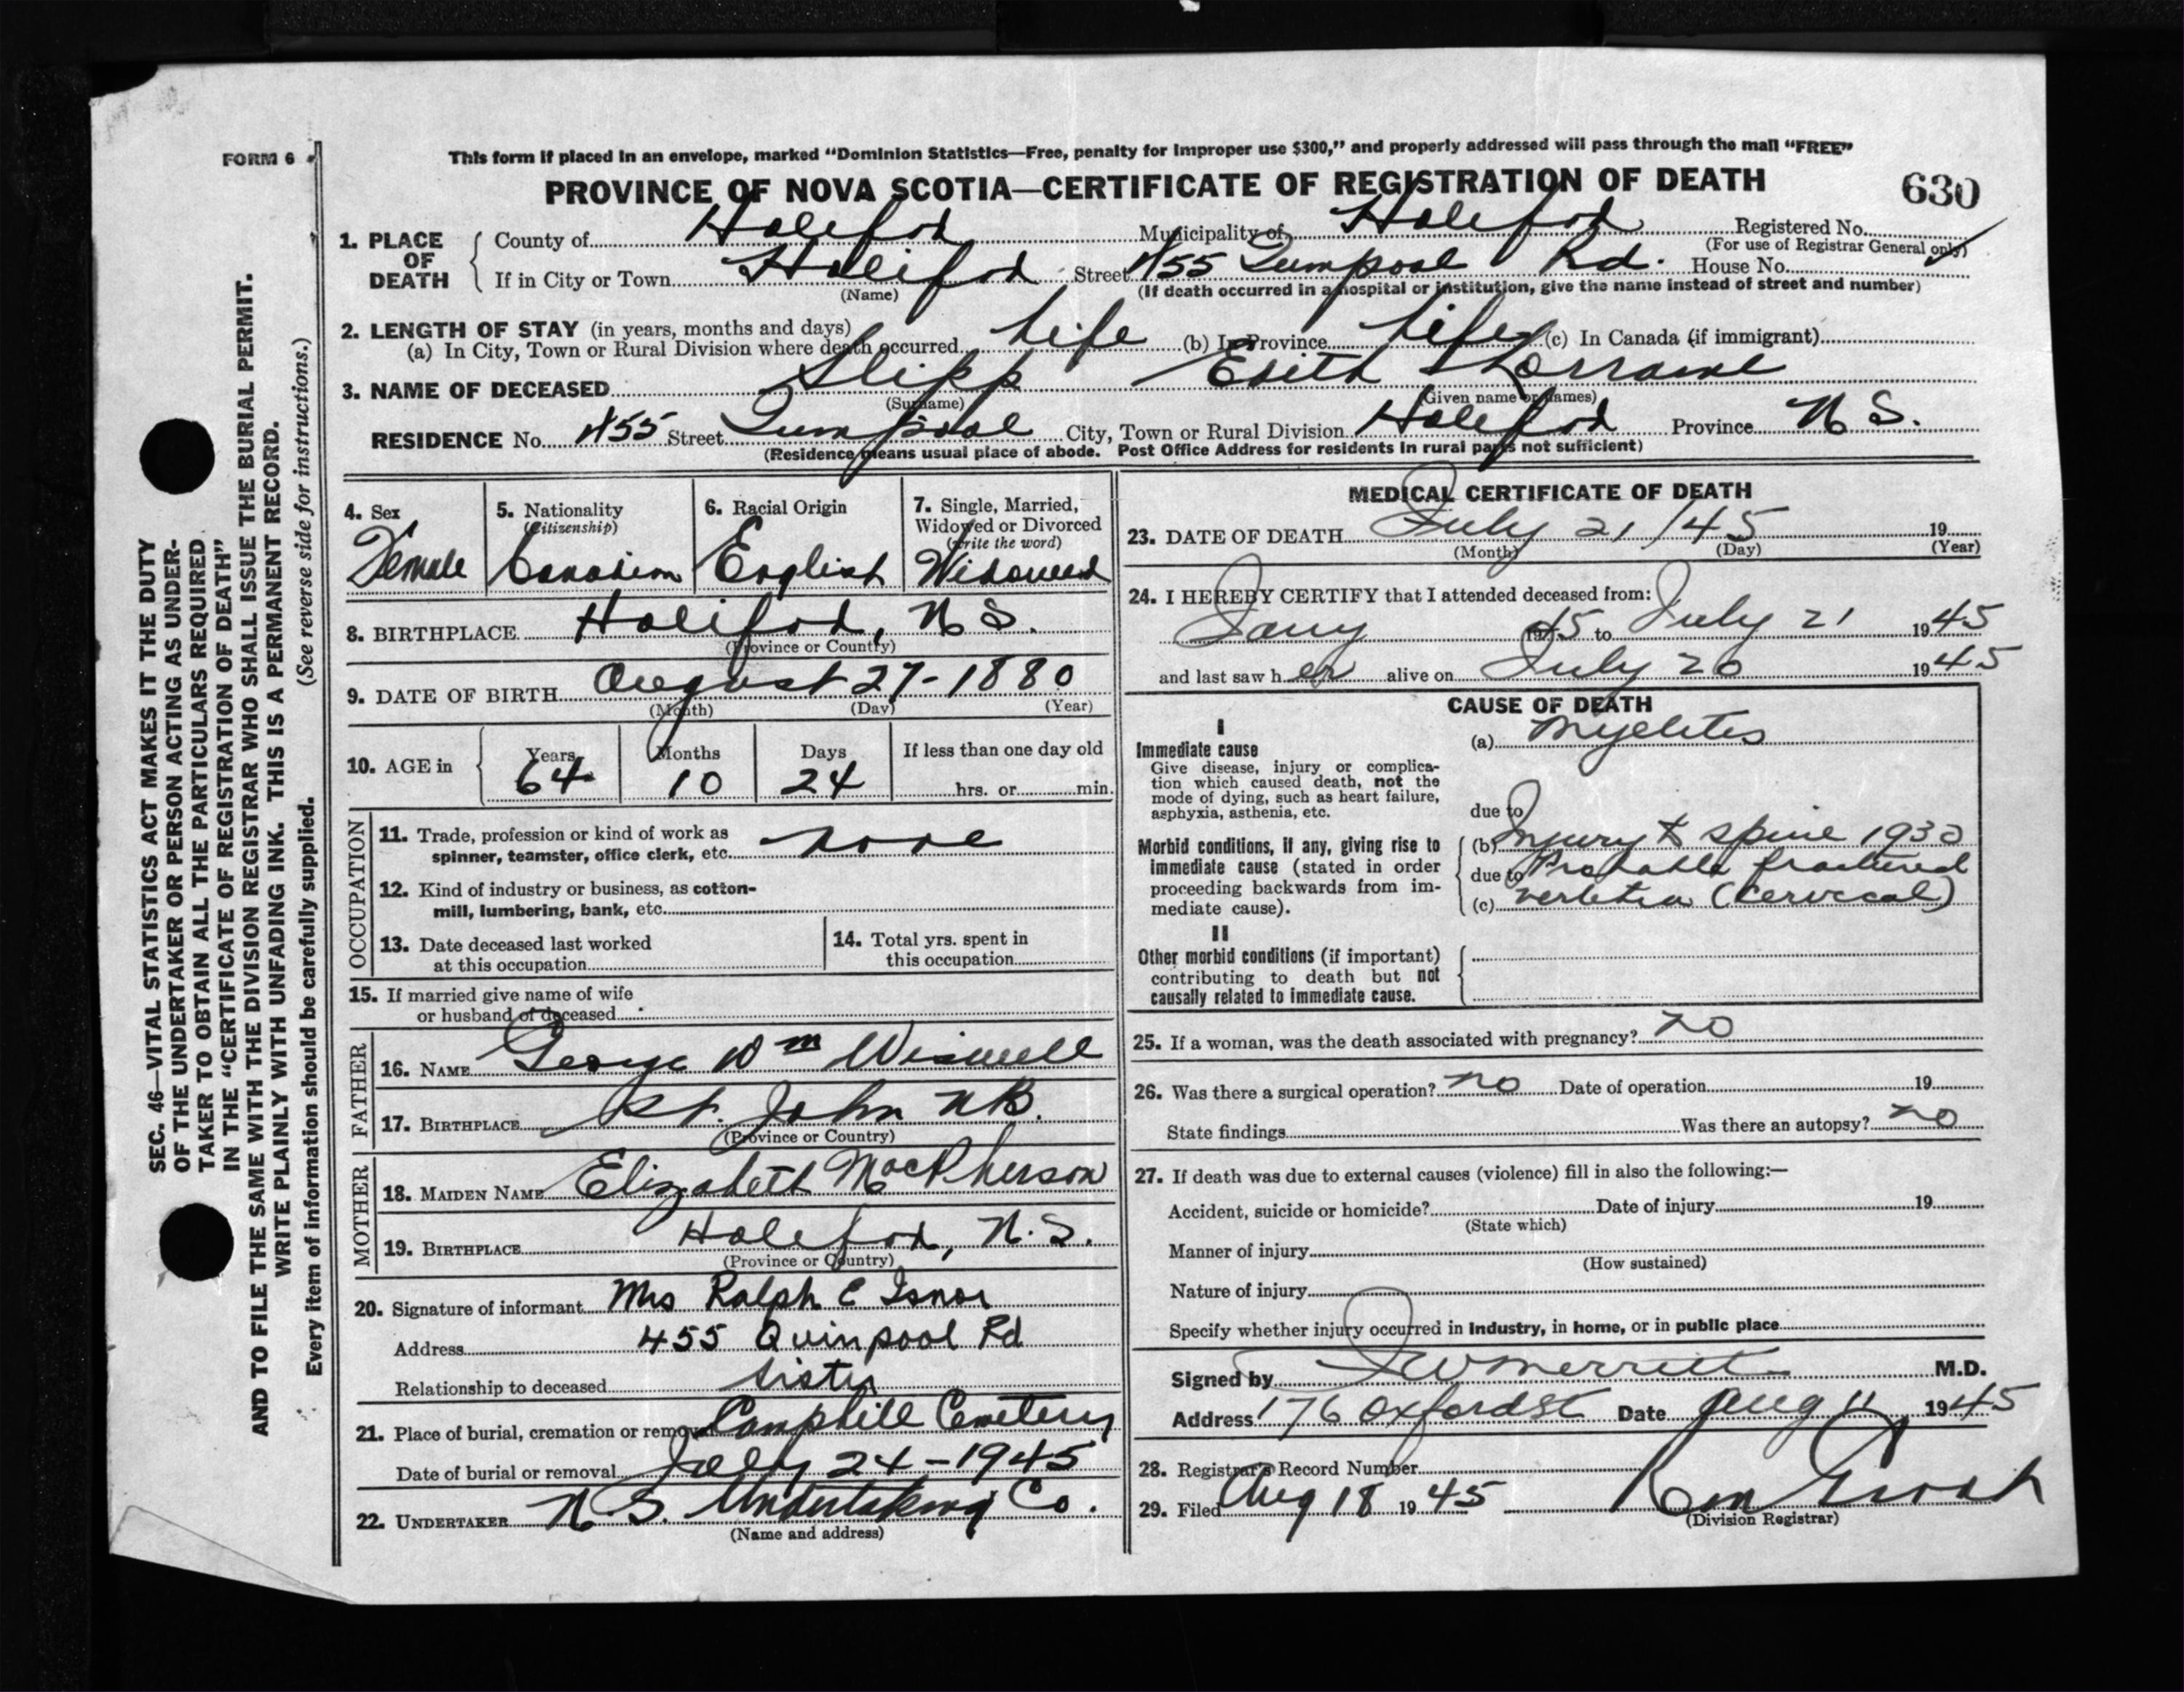 FORM 6
This form if placed in an envelope, marked “Dominion Statistics—Free, penalty for improper use $300,” and properly addressed will pass through the mail “FREE”
PROVINCE OF NOVA SCOTIA—CERTIFICATE OF REGISTRATION OF DEATH
630
SEC. 46—VITAL STATISTICS ACT MAKES IT THE DUTY
OF THE UNDERTAKER OR PERSON ACTING AS UNDER-
TAKER TO OBTAIN ALL THE PARTICULARS REQUIRED
IN THE “CERTIFICATE OF REGISTRATION OF DEATH”
AND TO FILE THE SAME WITH THE DIVISION REGISTRAR WHO SHALL ISSUE THE BURIAL PERMIT.
WRITE PLAINLY WITH UNFADING INK. THIS IS A PERMANENT RECORD.
Every item of information should be carefully supplied. (See reverse side for instructions.)
1. PLACE OF DEATH
County of Halifax Municipality of Halifax Registered No.
(For use of Registrar General only)
If in City or Town Halifax Street 455 Quinpool Rd. House No.
(Name) (If death occurred in a hospital or institution, give the name instead of street and number)
2. LENGTH OF STAY (in years, months and days)
(a) In City, Town or Rural Division where death occurred Life (b) In Province Life (c) In Canada (if immigrant)
3. NAME OF DECEASED Slipp Edith Lorraine
(Surname) (Given name or names)
RESIDENCE No. 455 Street Quinpool City, Town or Rural Division Halifax Province N S.
(Residence means usual place of abode. Post Office Address for residents in rural parts not sufficient)
4. Sex
Female
5. Nationality
(Citizenship)
Canadian
6. Racial Origin
English
7. Single, Married,
Widowed or Divorced
(write the word)
Widowed
8. BIRTHPLACE Halifax, N S.
(Province or Country)
9. DATE OF BIRTH August 27-1880
(Month) (Day) (Year)
10. AGE in Years Months Days If less than one day old
64 10 24 hrs. or min.
OCCUPATION
11. Trade, profession or kind of work as
spinner, teamster, office clerk, etc. none
12. Kind of industry or business, as cotton-
mill, lumbering, bank, etc.
13. Date deceased last worked
at this occupation
14. Total yrs. spent in
this occupation
15. If married give name of wife
or husband of deceased
FATHER
16. NAME George Wm Wiswell
17. BIRTHPLACE St. John NB.
(Province or Country)
MOTHER
18. MAIDEN NAME Elizabeth MacPherson
19. BIRTHPLACE Halifax, N.S.
(Province or Country)
20. Signature of informant Mrs Ralph E Isnor
Address 455 Quinpool Rd
Relationship to deceased Sister
21. Place of burial, cremation or removal Camphill Cemetery
Date of burial or removal July 24-1945
22. UNDERTAKER N.S. Undertaking Co.
(Name and address)
MEDICAL CERTIFICATE OF DEATH
23. DATE OF DEATH July 21/45 19
(Month) (Day) (Year)
24. I HEREBY CERTIFY that I attended deceased from:
Jany 1945 to July 21 1945
and last saw her alive on July 20 1945
CAUSE OF DEATH
I
Immediate cause
Give disease, injury or complica-
tion which caused death, not the
mode of dying, such as heart failure,
asphyxia, asthenia, etc.
(a) Myelitis
due to
Morbid conditions, if any, giving rise to
immediate cause (stated in order
proceeding backwards from im-
mediate cause).
(b) Injury to spine 1930
due to Probable fractured
(c) vertebra (Cervical)
II
Other morbid conditions (if important)
contributing to death but not
causally related to immediate cause.
25. If a woman, was the death associated with pregnancy? no
26. Was there a surgical operation? no Date of operation 19
State findings Was there an autopsy? no
27. If death was due to external causes (violence) fill in also the following:—
Accident, suicide or homicide? Date of injury 19
(State which)
Manner of injury
(How sustained)
Nature of injury
Specify whether injury occurred in industry, in home, or in public place
Signed by Merritt M.D.
Address 176 Oxford St Date Aug 11 1945
28. Registrar's Record Number
29. Filed Aug 18 1945
(Division Registrar)